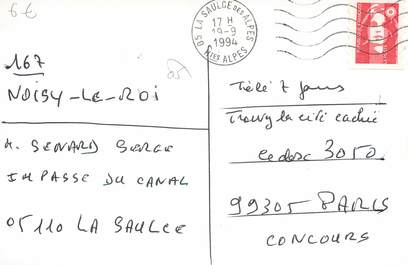 6€
05 LA SAULCE DES ALPES
17 H
19-9
1994
HTES ALPES
167
NOISY-LE-ROI
M. SENARD SERGE
IMPASSE DU CANAL
05110 LA SAULCE
Télé 7 Jours
Trouvez la cité cachée
cedex 3050.
99305 PARIS
CONCOURS